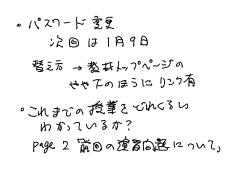 ・パスワード変更
次回は1月9日
替え方→教材トップページの
やや下のほうにリンク有
・これまでの授業をどれくらい
わかっているか?
page 2 前回の演習問題について,